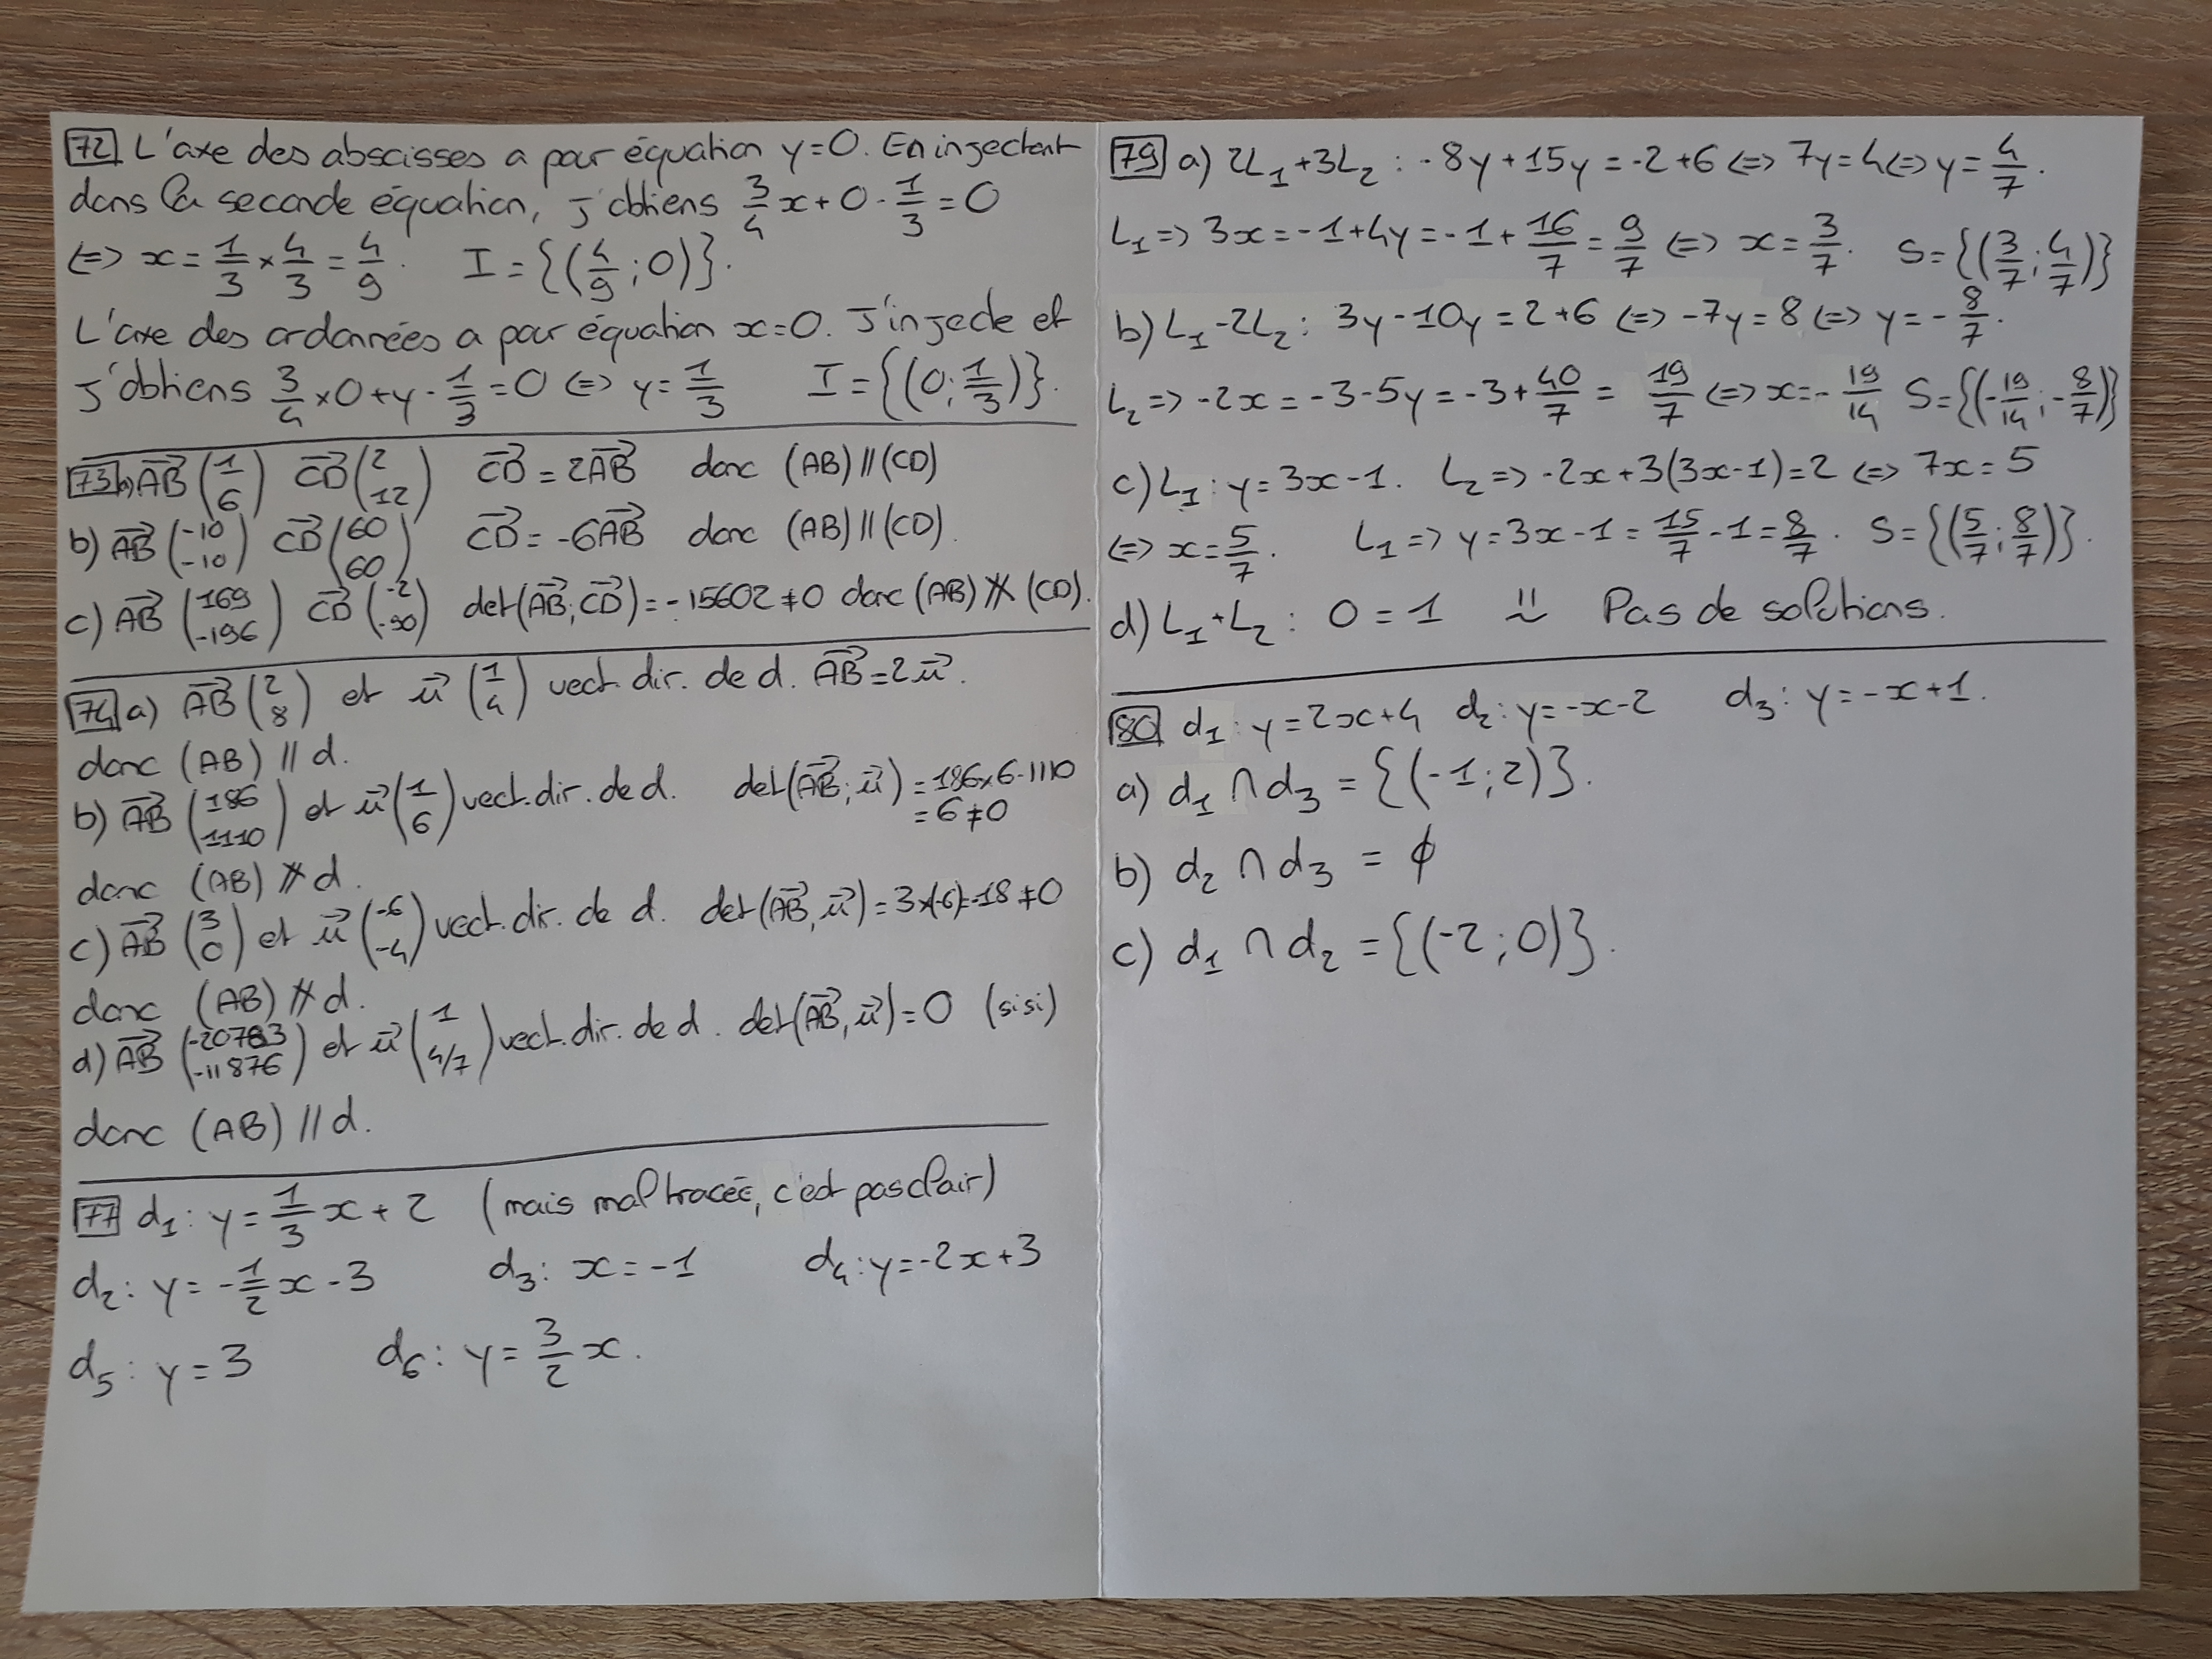 72 L'axe des abscisses a pour équation y=0. En injectant
dans la seconde équation, j'obtiens 3/4 x + 0 - 1/3 = 0
⇔ x = 1/3 × 4/3 = 4/9. I = {(4/9 ; 0)}.
L'axe des ordonnées a pour équation x=0. J'injecte et
j'obtiens 3/4 × 0 + y - 1/3 = 0 ⇔ y = 1/3 I = {(0 ; 1/3)}.
73 a) AB→ (1 ; 6) CD→ (2 ; 12) CD→ = 2AB→ donc (AB) // (CD)
b) AB→ (-10 ; -10) CD→ (60 ; 60) CD→ = -6AB→ donc (AB) // (CD).
c) AB→ (169 ; -196) CD→ (-2 ; -90) det(AB→ ; CD→) = -15602 ≠ 0 donc (AB) ∦ (CD).
74 a) AB→ (2 ; 8) et u→ (1 ; 4) vect. dir. de d. AB→ = 2u→.
donc (AB) // d.
b) AB→ (186 ; 1110) et u→ (1 ; 6) vect. dir. de d. det(AB→ ; u→) = 186×6-1110
= 6 ≠ 0
donc (AB) ∦ d.
c) AB→ (3 ; 0) et u→ (-6 ; -4) vect. dir. de d. det(AB→, u→) = 3×(-6) = -18 ≠ 0
donc (AB) ∦ d.
d) AB→ (-20783 ; -11876) et u→ (1 ; 4/7) vect. dir. de d. det(AB→, u→) = 0 (sisi)
donc (AB) // d.
77 d₁ : y = 1/3 x + 2 (mais mal tracée, c'est pas clair)
d₂ : y = -1/2 x - 3 d₃ : x = -1 d₄ : y = -2x + 3
d₅ : y = 3 d₆ : y = 3/2 x.
79 a) 2L₁ + 3L₂ : -8y + 15y = -2 + 6 ⇔ 7y = 4 ⇔ y = 4/7.
L₁ ⇒ 3x = -1 + 4y = -1 + 16/7 = 9/7 ⇔ x = 3/7. S = {(3/7 ; 4/7)}
b) L₁ - 2L₂ : 3y - 10y = 2 + 6 ⇔ -7y = 8 ⇔ y = -8/7.
L₂ ⇒ -2x = -3 - 5y = -3 + 40/7 = 19/7 ⇔ x = -19/14 S = {(-19/14 ; -8/7)}
c) L₁ : y = 3x - 1. L₂ ⇒ -2x + 3(3x - 1) = 2 ⇔ 7x = 5
⇔ x = 5/7. L₁ ⇒ y = 3x - 1 = 15/7 - 1 = 8/7. S = {(5/7 ; 8/7)}.
d) L₁ + L₂ : 0 = 1 Pas de solutions.
80 d₁ : y = 2x + 4 d₂ : y = -x - 2 d₃ : y = -x + 1.
a) d₁ ∩ d₃ = {(-1 ; 2)}.
b) d₂ ∩ d₃ = ∅
c) d₁ ∩ d₂ = {(-2 ; 0)}.